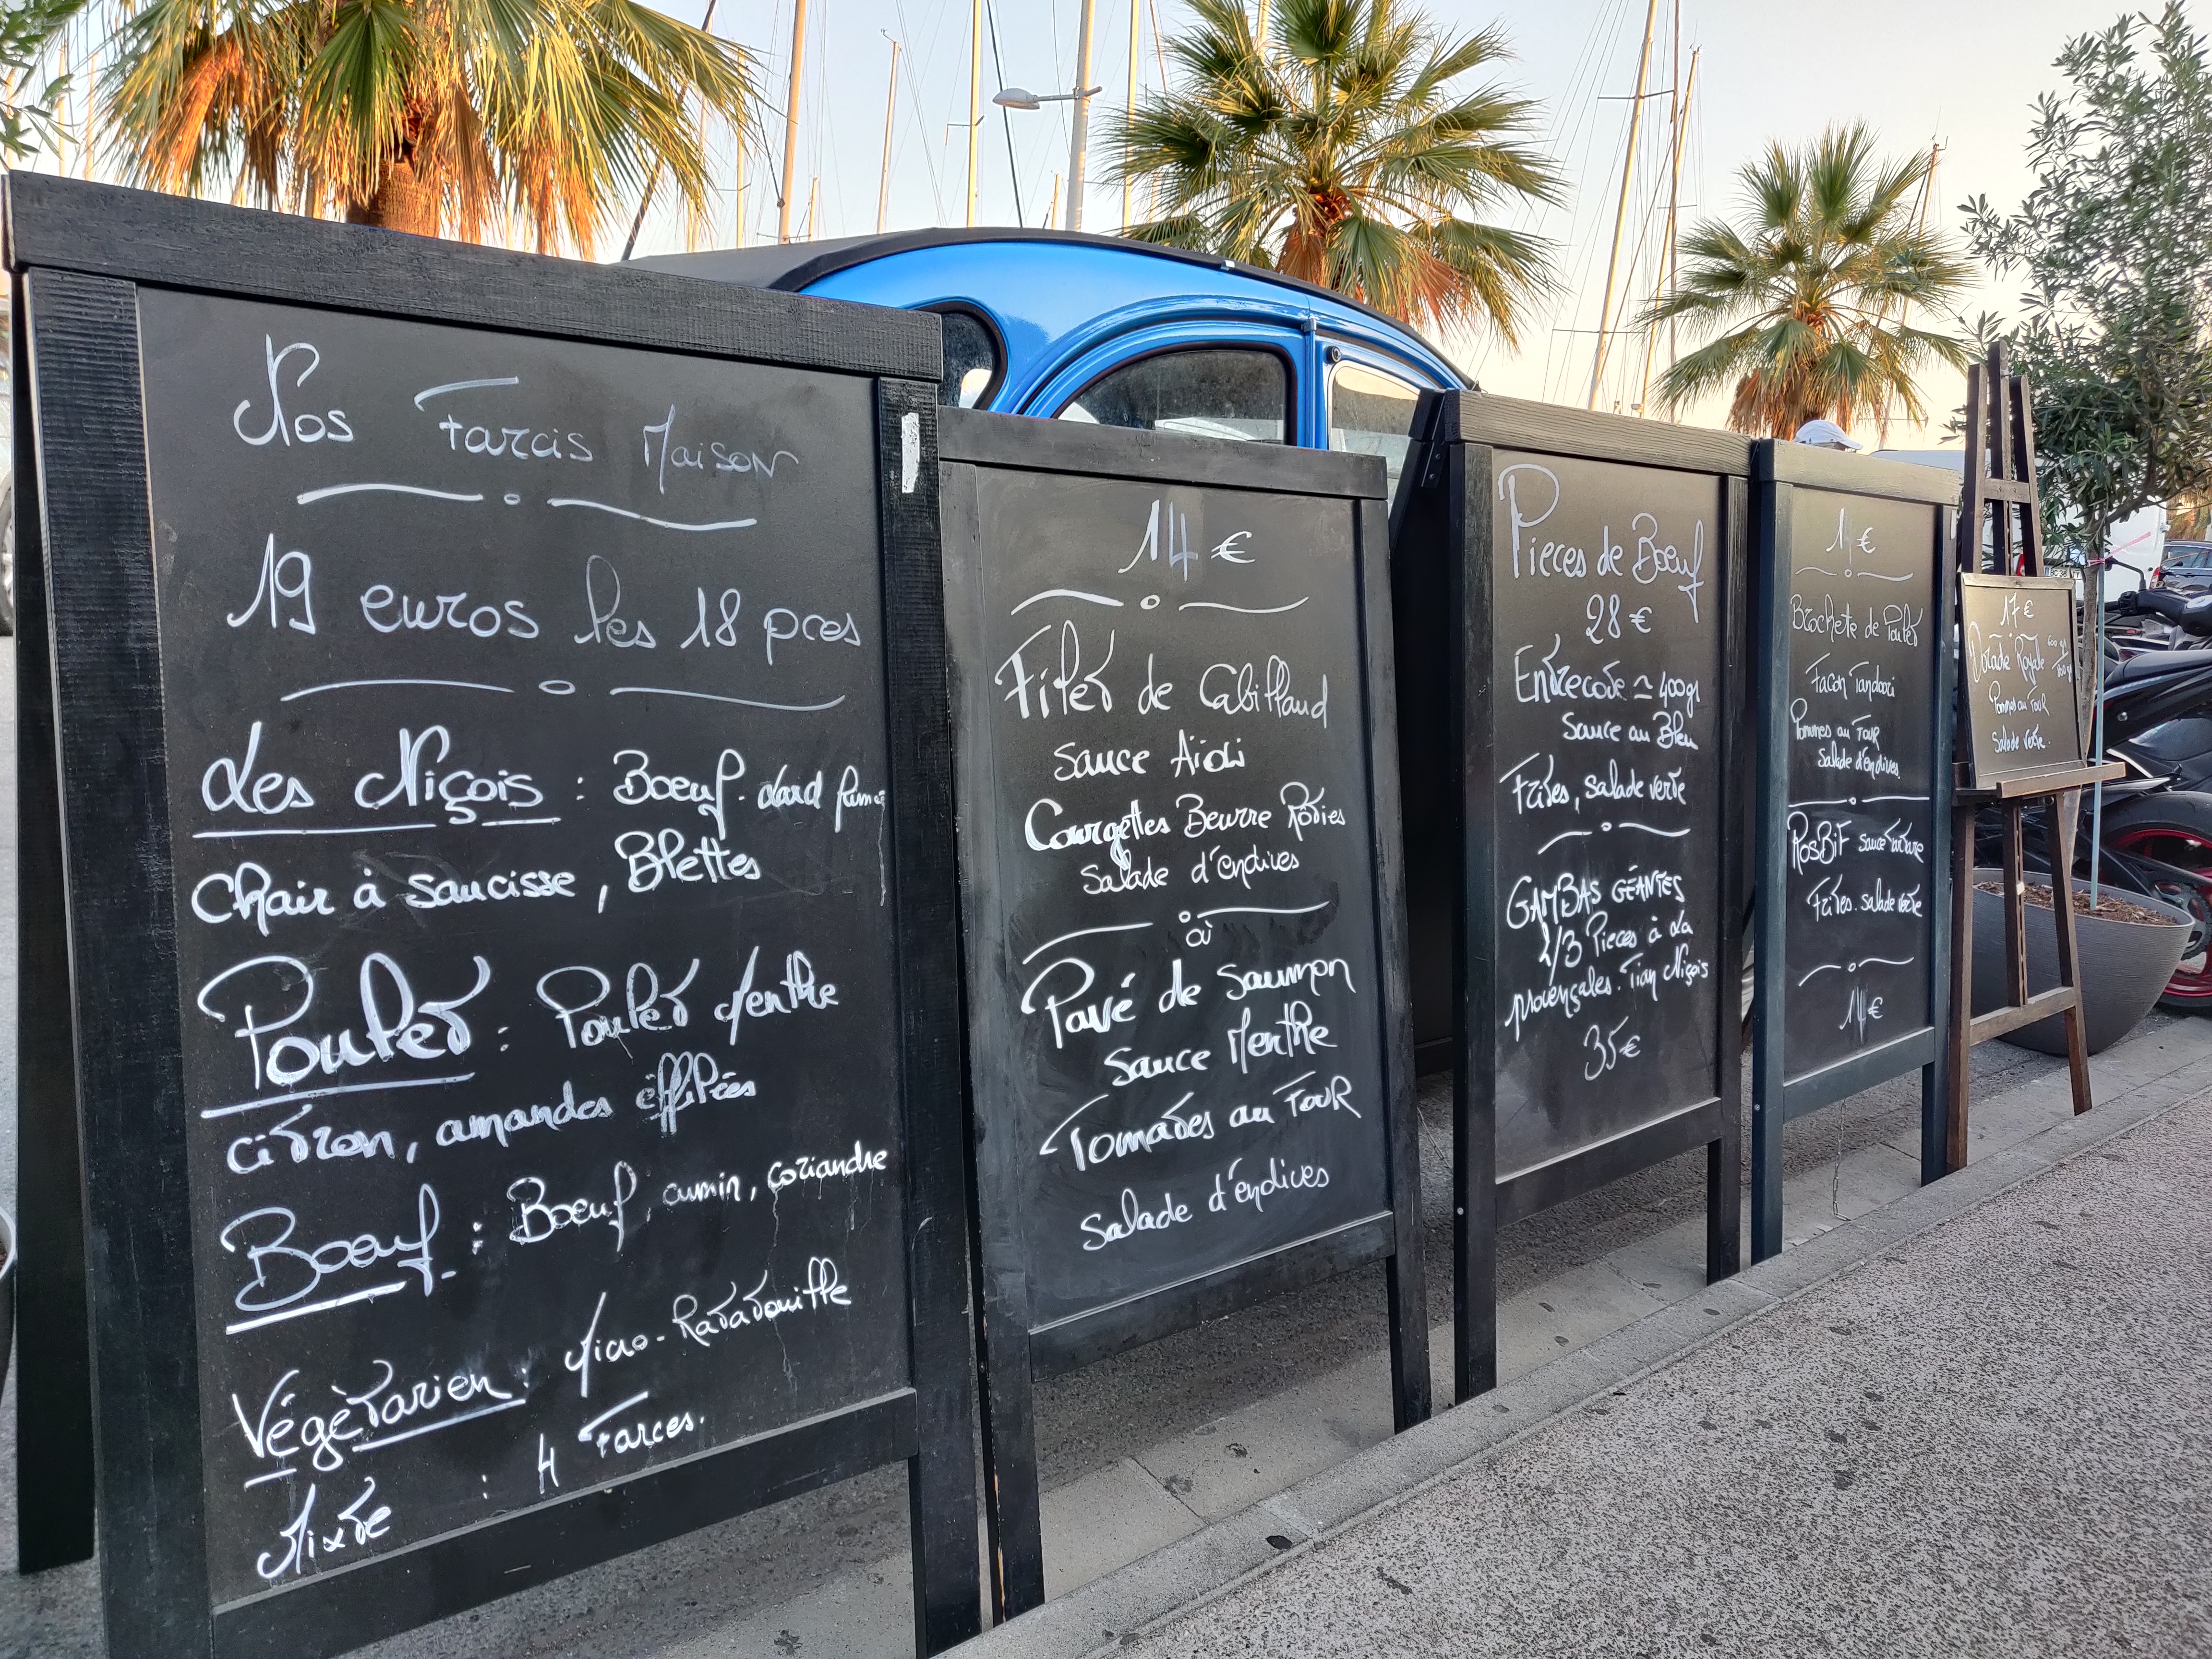 Nos Farcis Maison
19 euros les 18 pces
Les Niçois : Boeuf. Lard fumé
Chair à saucisse, Blettes
Poulet : Poulet Menthe
citron, amandes éffilées
Boeuf : Boeuf, cumin, coriandre
Végètarien : Mino-Ratatouille
Mixte : 4 Farces.
14 €
Filet de Cabillaud
Sauce Aïoli
Courgettes Beurre Roties
Salade d'endives
où
Pavé de Saumon
Sauce Menthe
Tomates au Four
Salade d'endives
Pieces de Boeuf
28 €
Entrecote ≃ 400gr
Sauce au Bleu
Frites, salade verte
GAMBAS GÉANTES
2/3 Pieces à La
provençales. Tian Niçois
35€
14 €
Brochete de Poulet
Facon Tandoori
Pommes au Four
Salade d'endives
RosBiF sauce tartare
Frites. salade verte
14€
17 €
Dorade Royale
Pommes au Four
Salade verte.